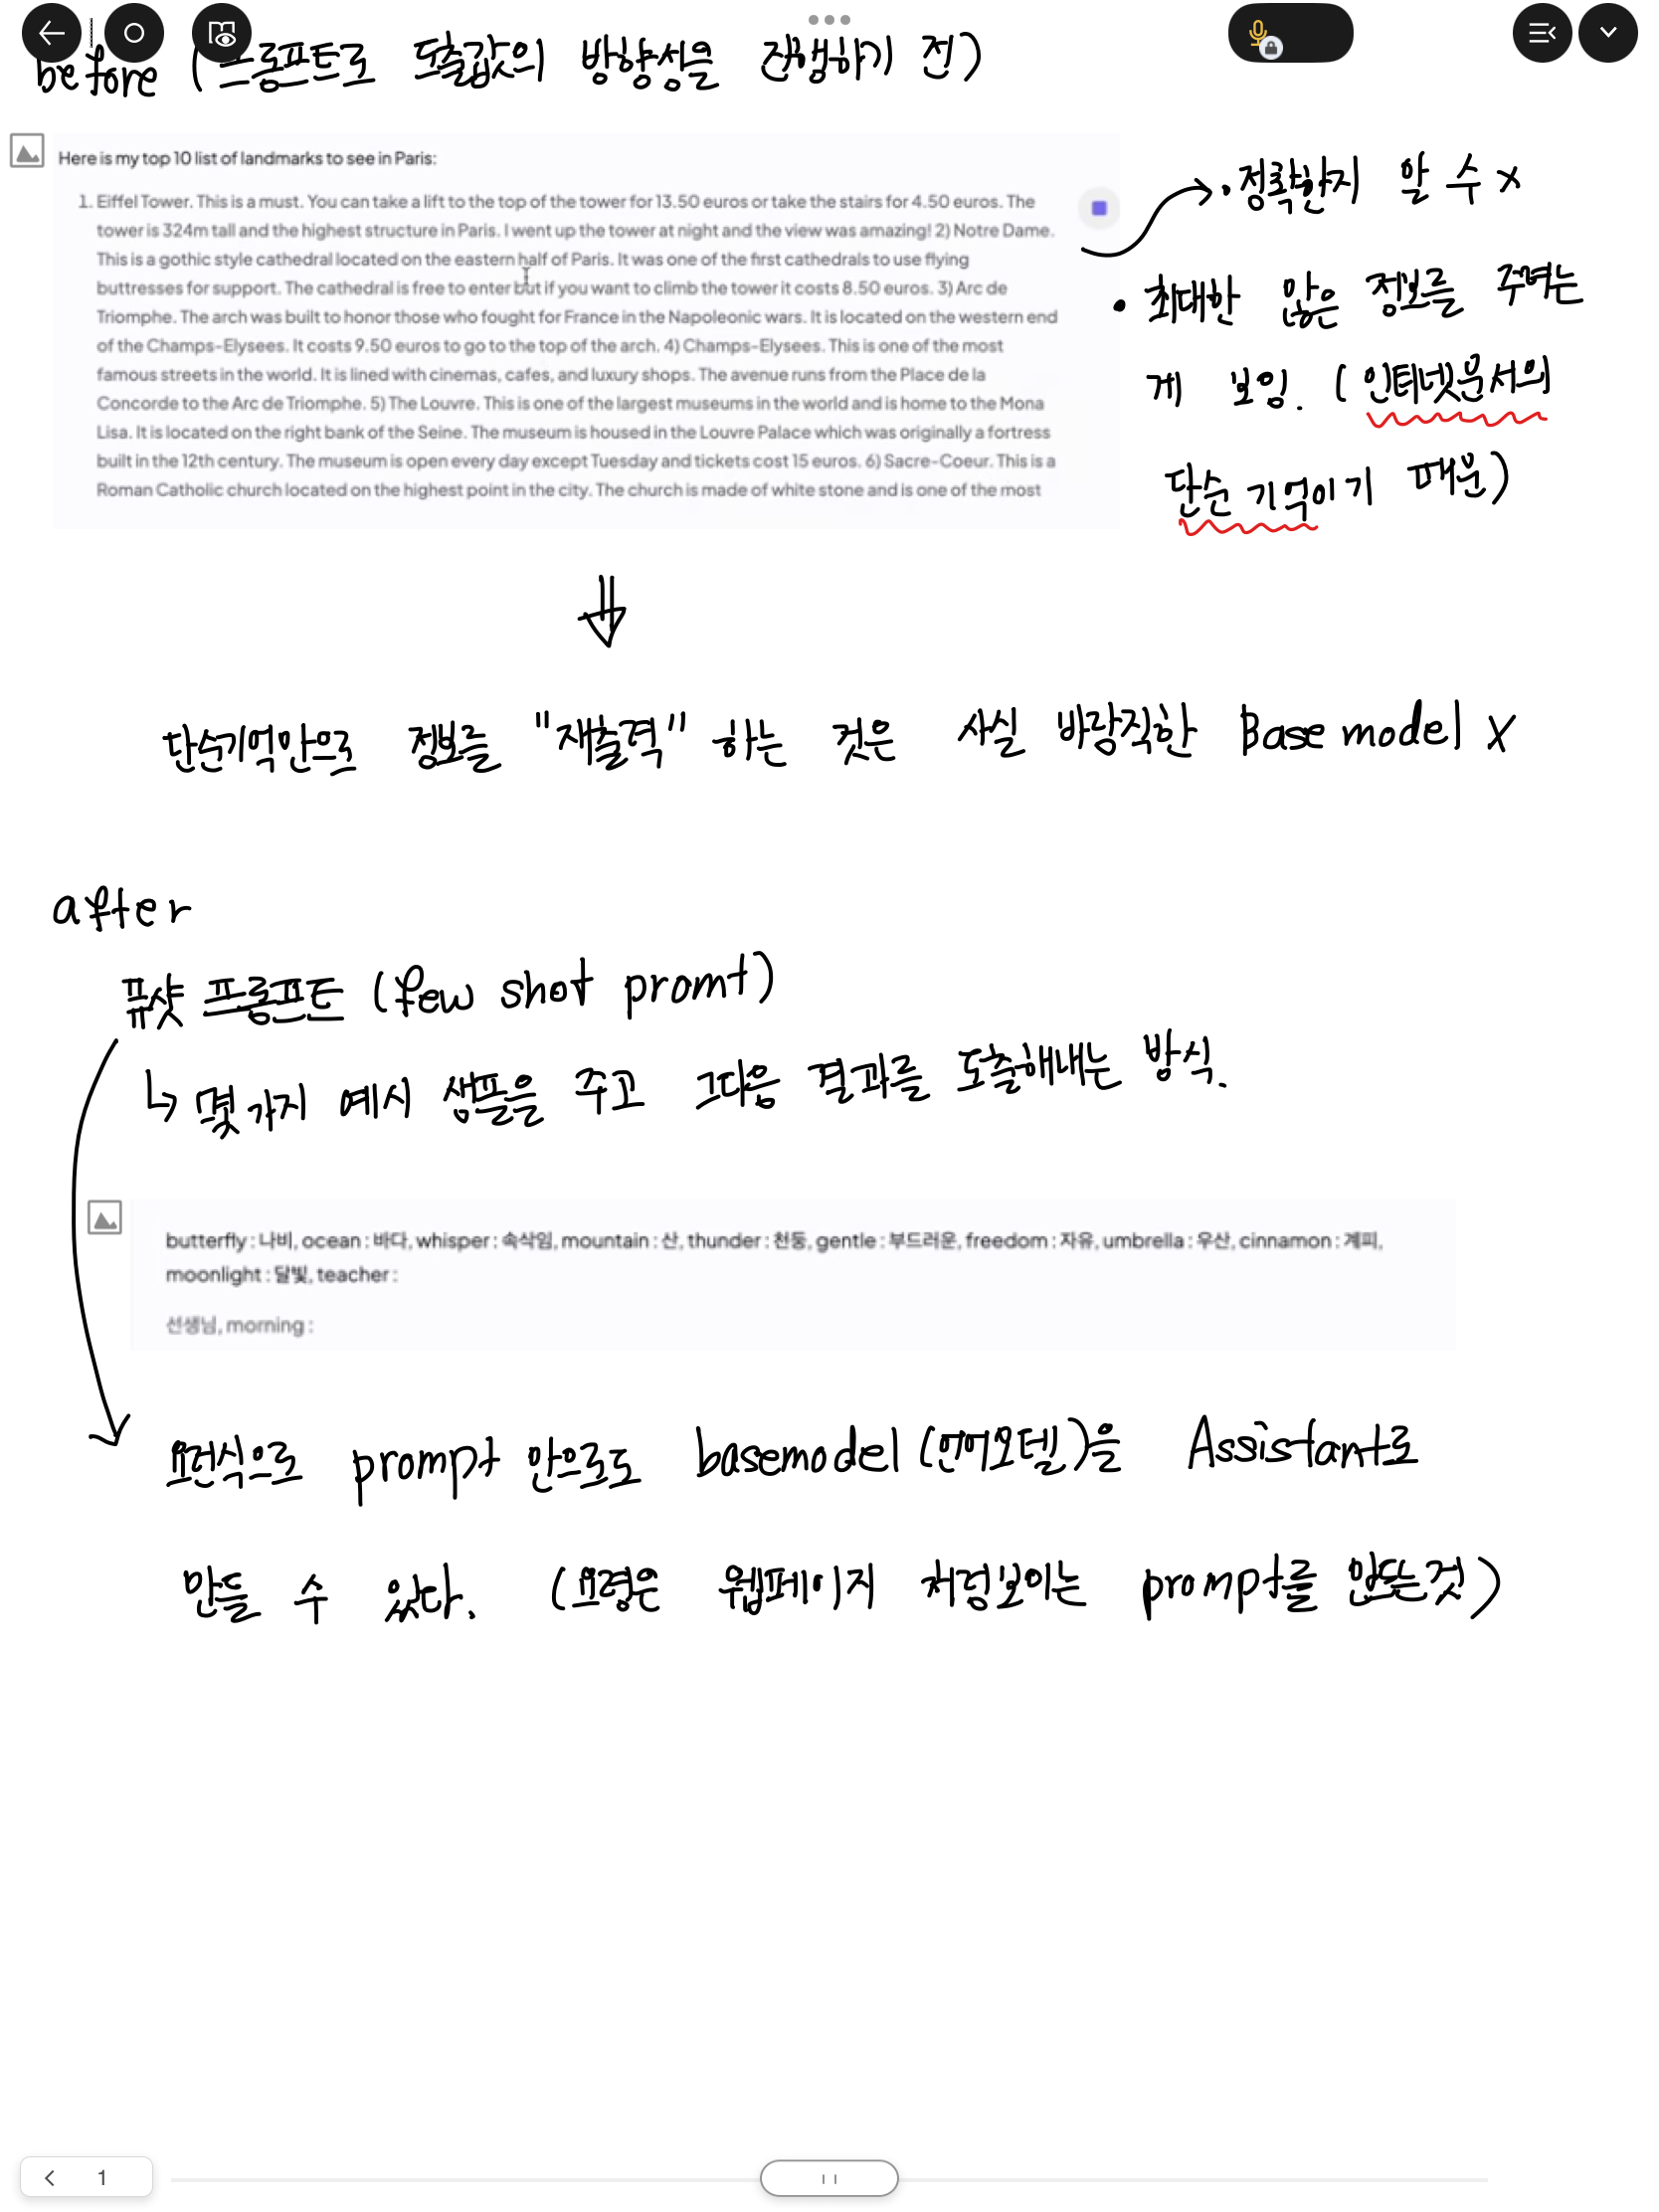 before (프롬프트로 도출값의 방향성을 전향하기 전)
Here is my top 10 list of landmarks to see in Paris:
1. Eiffel Tower. This is a must. You can take a lift to the top of the tower for 13.50 euros or take the stairs for 4.50 euros. The
tower is 324m tall and the highest structure in Paris. I went up the tower at night and the view was amazing! 2) Notre Dame.
This is a gothic style cathedral located on the eastern half of Paris. It was one of the first cathedrals to use flying
buttresses for support. The cathedral is free to enter but if you want to climb the tower it costs 8.50 euros. 3) Arc de
Triomphe. The arch was built to honor those who fought for France in the Napoleonic wars. It is located on the western end
of the Champs-Elysees. It costs 9.50 euros to go to the top of the arch. 4) Champs-Elysees. This is one of the most
famous streets in the world. It is lined with cinemas, cafes, and luxury shops. The avenue runs from the Place de la
Concorde to the Arc de Triomphe. 5) The Louvre. This is one of the largest museums in the world and is home to the Mona
Lisa. It is located on the right bank of the Seine. The museum is housed in the Louvre Palace which was originally a fortress
built in the 12th century. The museum is open every day except Tuesday and tickets cost 15 euros. 6) Sacre-Coeur. This is a
Roman Catholic church located on the highest point in the city. The church is made of white stone and is one of the most
• 정확한지 알 수 x
• 최대한 많은 정보를 주려는
게 보임. (인터넷문서의
단순 기억이기 때문)
단순기억만으로 정보를 "재출력" 하는 것은 사실 바람직한 Base model X
after
퓨샷 프롬프트 (few shot promt)
↳ 몇 가지 예시 샘플을 주고 그다음 결과를 도출해내는 방식.
butterfly : 나비, ocean : 바다, whisper : 속삭임, mountain : 산, thunder : 천둥, gentle : 부드러운, freedom : 자유, umbrella : 우산, cinnamon : 계피,
moonlight : 달빛, teacher :
선생님, morning :
요런식으로 prompt 만으로도 basemodel (언어모델)을 Assistant로
만들 수 있다. (요령은 웹페이지 처럼보이는 prompt를 만드는것)
1